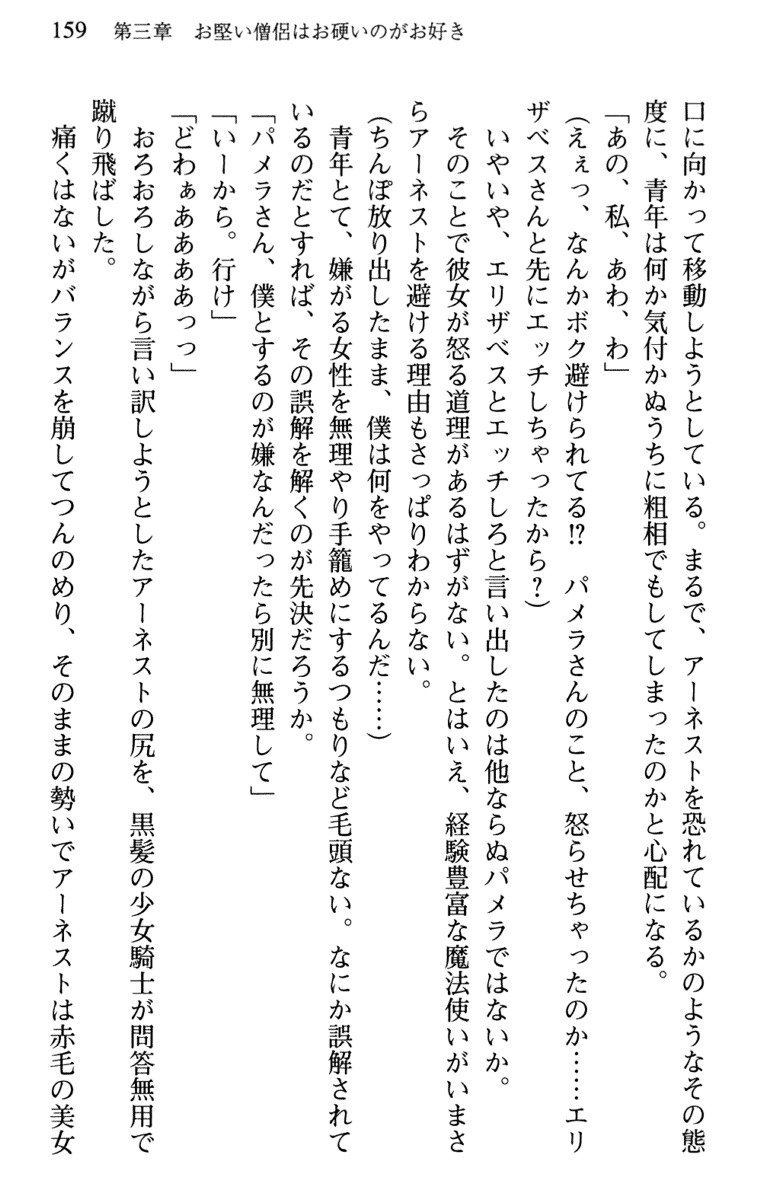 159　第三章　お堅い僧侶はお硬いのがお好き
口に向かって移動しようとしている。まるで、アーネストを恐れているかのようなその態
度に、青年は何か気付かぬうちに粗相でもしてしまったのかと心配になる。
「あの、私、あわ、わ」
（えぇっ、なんかボク避けられてる!?　パメラさんのこと、怒らせちゃったのか……エリ
ザベスさんと先にエッチしちゃったから？）
　いやいや、エリザベスとエッチしろと言い出したのは他ならぬパメラではないか。
　そのことで彼女が怒る道理があるはずがない。とはいえ、経験豊富な魔法使いがいまさ
らアーネストを避ける理由もさっぱりわからない。
（ちんぽ放り出したまま、僕は何をやってるんだ……）
　青年とて、嫌がる女性を無理やり手籠めにするつもりなど毛頭ない。なにか誤解されて
いるのだとすれば、その誤解を解くのが先決だろうか。
「パメラさん、僕とするのが嫌なんだったら別に無理して」
「いーから。行け」
「どわぁああああっっ」
　おろおろしながら言い訳しようとしたアーネストの尻を、黒髪の少女騎士が問答無用で
蹴り飛ばした。
　痛くはないがバランスを崩してつんのめり、そのままの勢いでアーネストは赤毛の美女